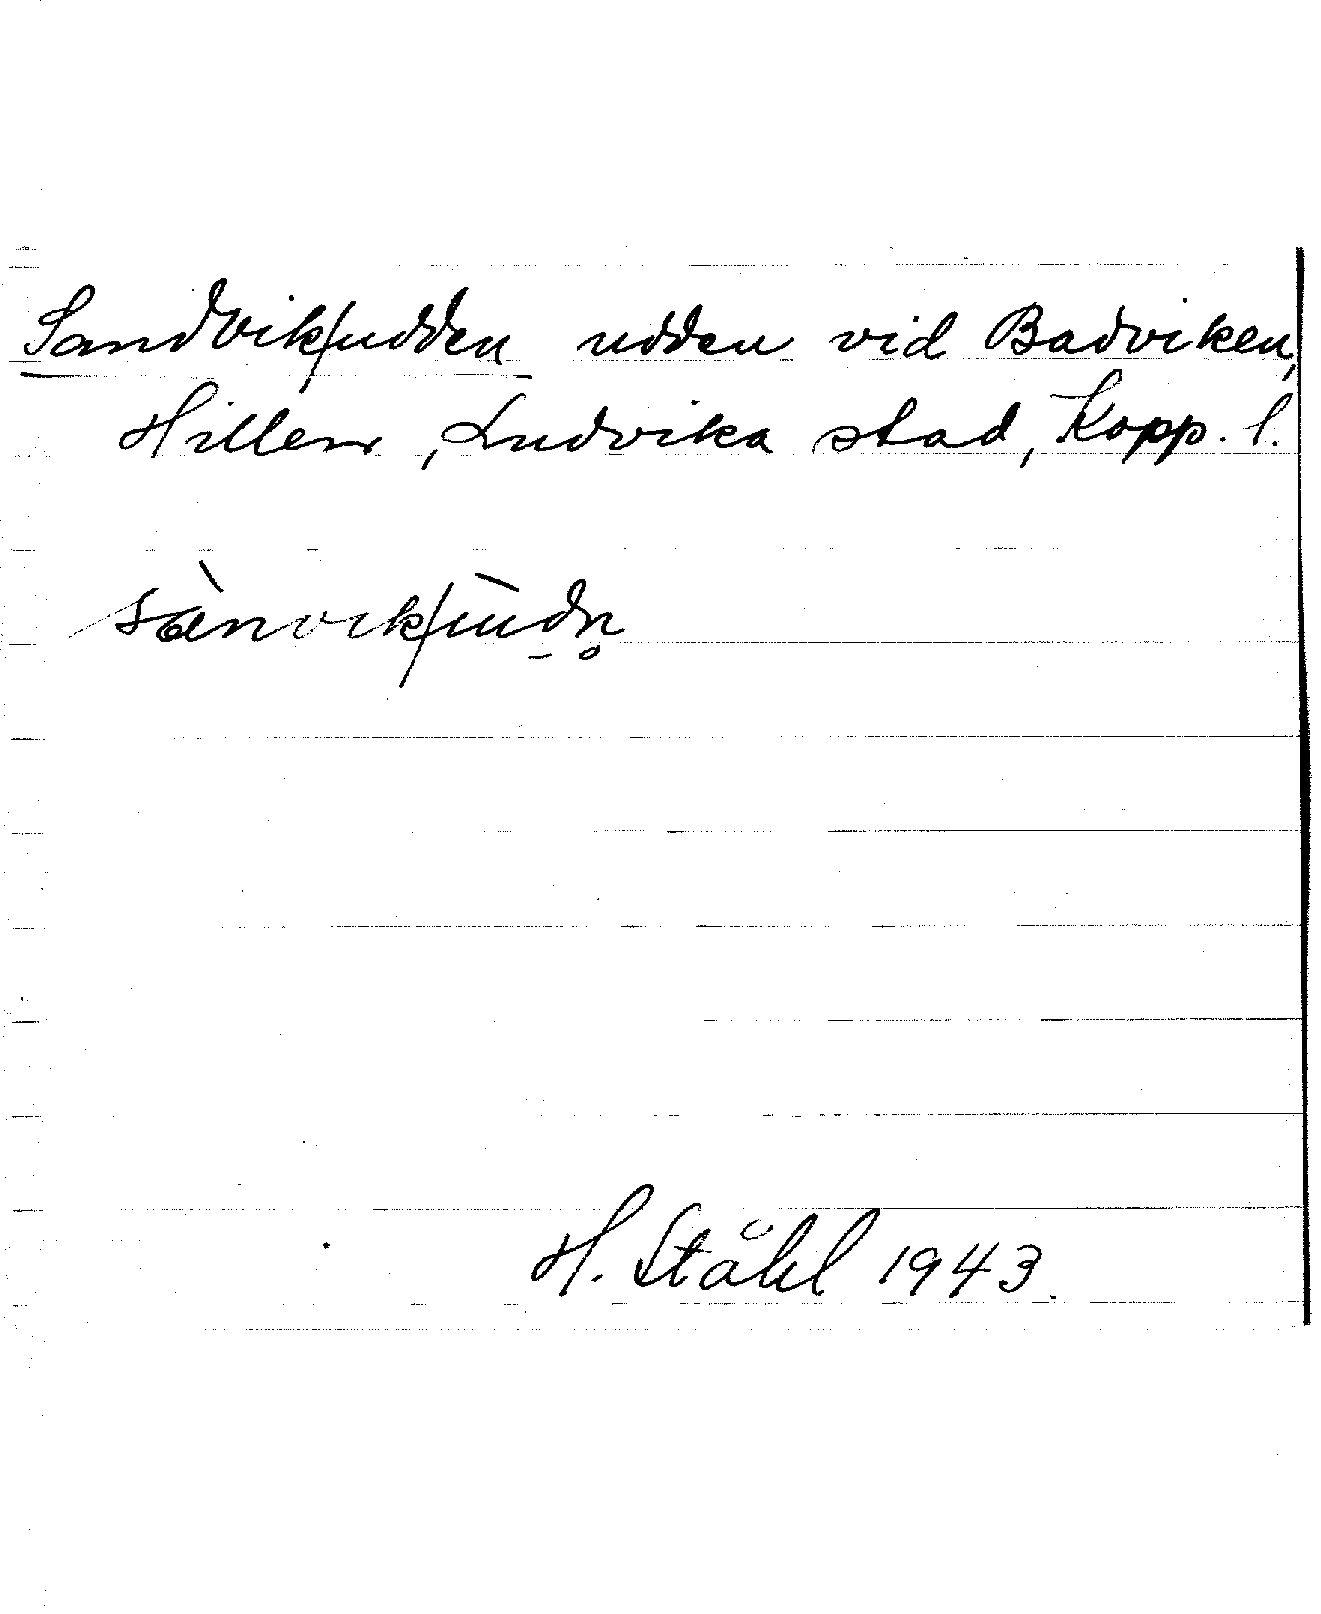 Sandviksudden udden vid Badviken,
Hillen, Ludvika stad, Kopp. l.
sànviksùdn̥
H. Ståhl 1943.